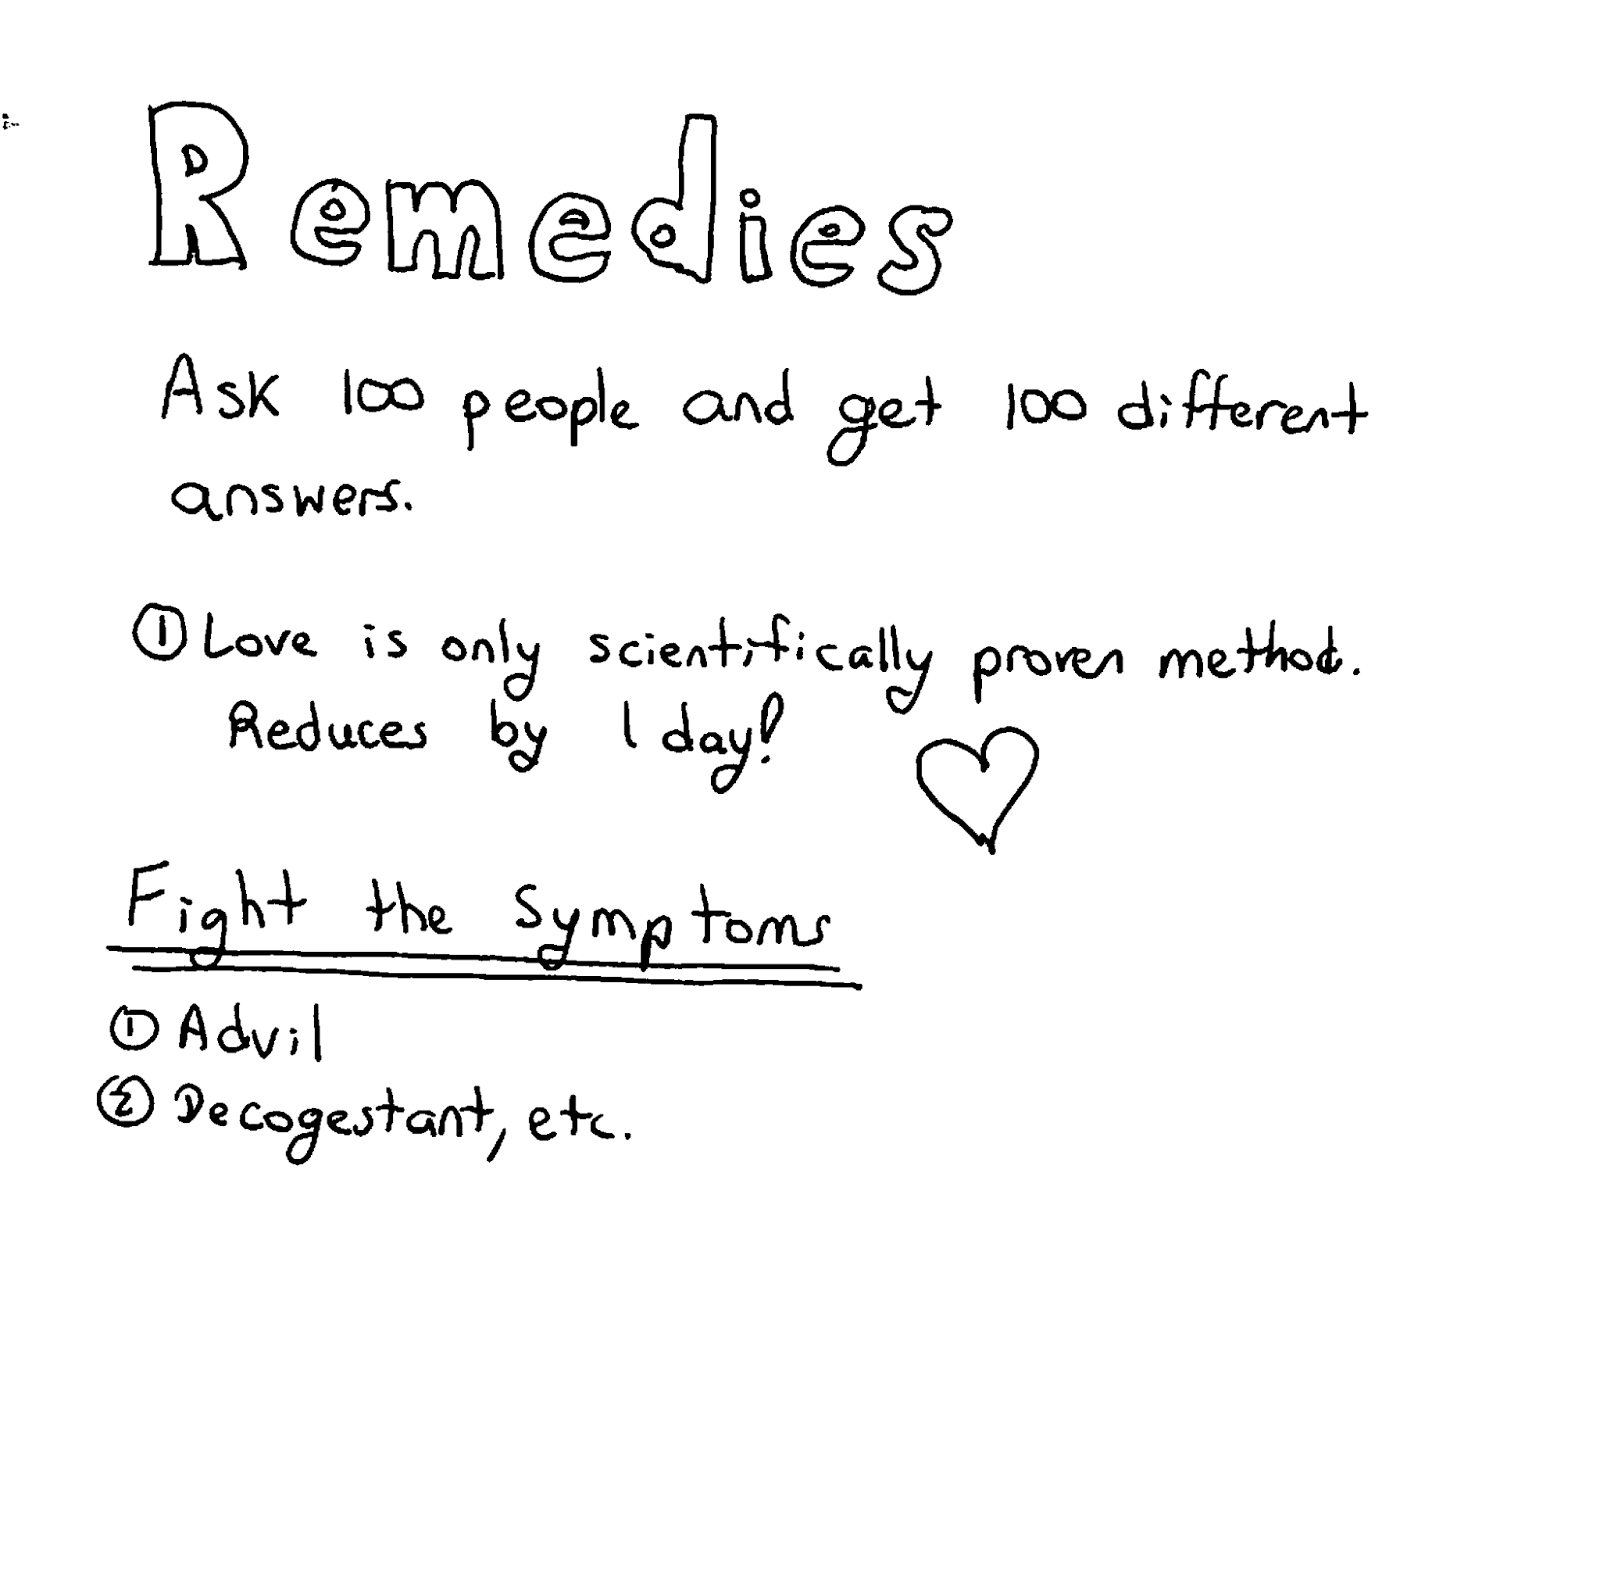 Remedies
Ask 100 people and get 100 different
answers.
① Love is only scientifically proven method.
Reduces by 1 day!
Fight the Symptoms
① Advil
② Decogestant, etc.